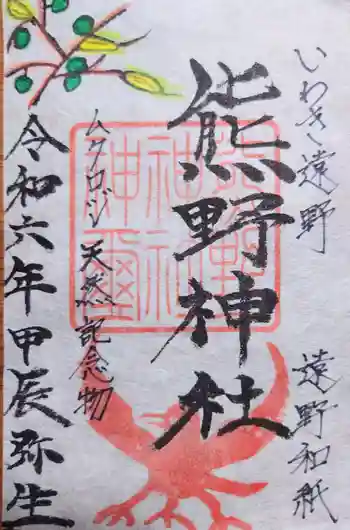 いわき遠野
遠野和紙
熊野神社
ムクロジ
天然記念物
令和六年甲辰弥生